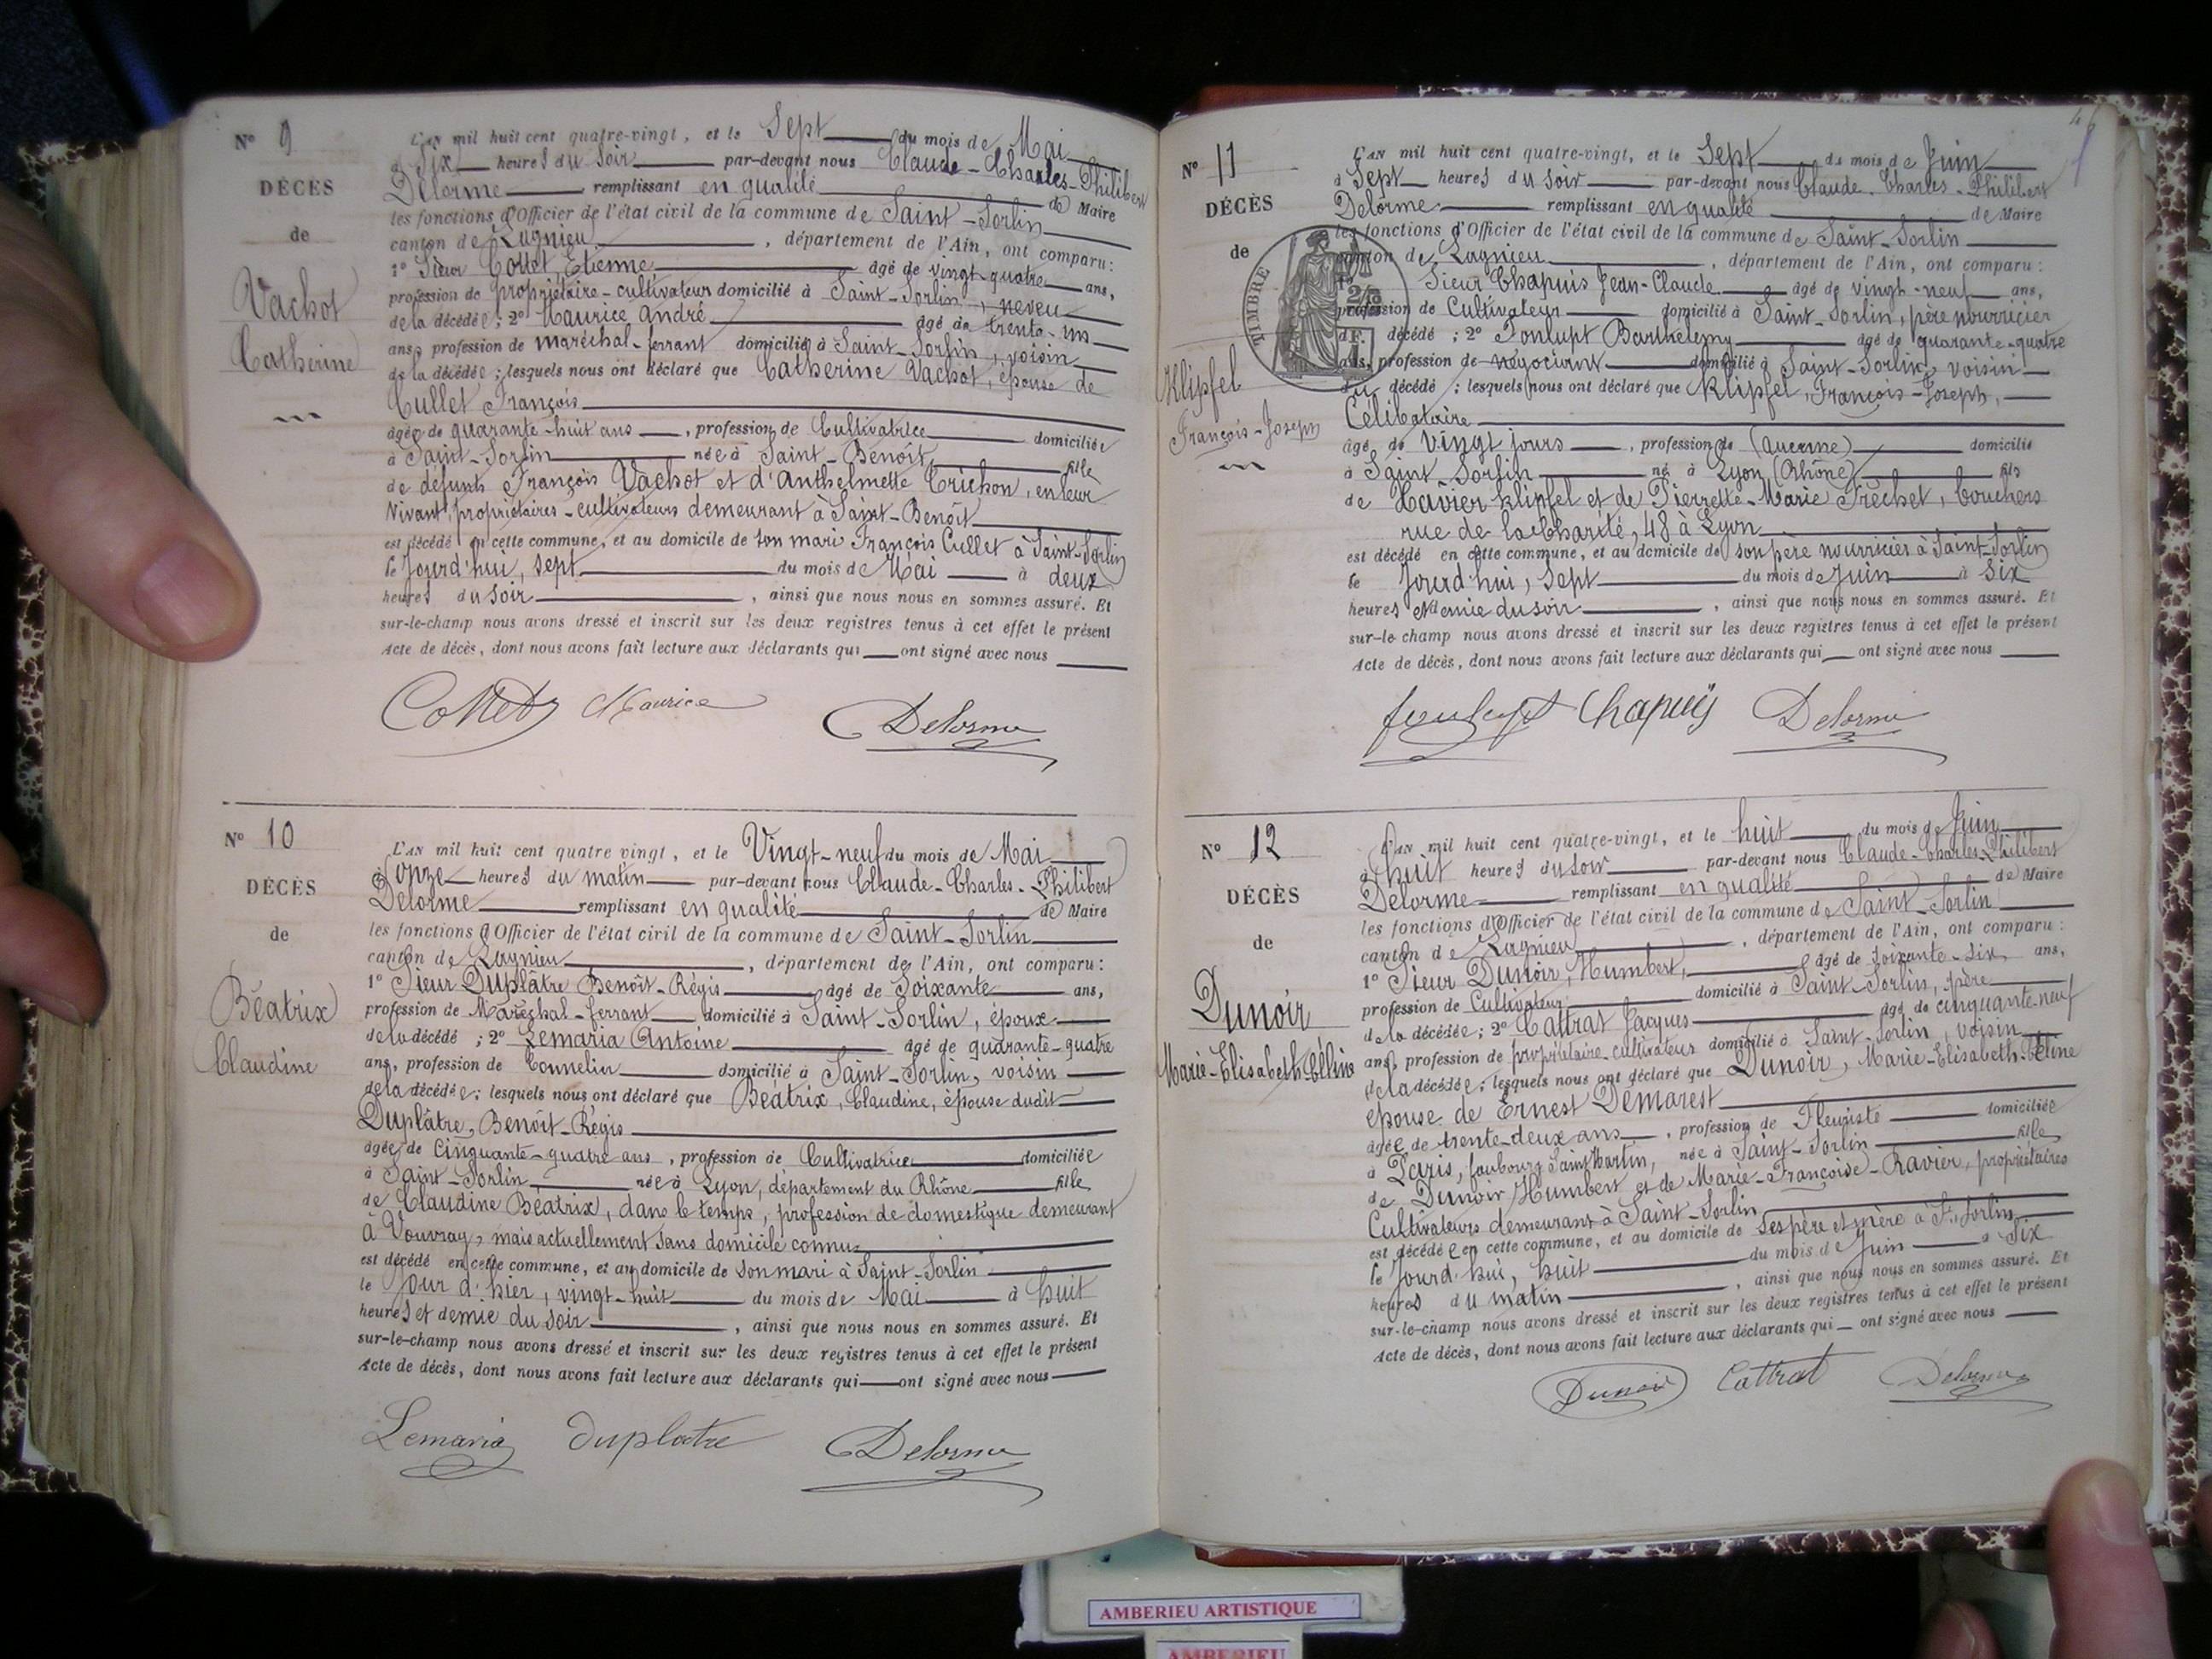 N° 9
DÉCÈS
de
Vachot
Catherine
L'AN mil huit cent quatre-vingt, et le Sept du mois de Mai
à Six heures du Soir par-devant nous Claude-Charles-Philibert
Delorme remplissant en qualité de Maire
les fonctions d'Officier de l'état civil de la commune de Saint-Sorlin
canton de Lagnieu, département de l'Ain, ont comparu:
1° Sieur Collet, Etienne âgé de vingt-quatre ans,
profession de propriétaire-cultivateur domicilié à Saint-Sorlin, neveu
de la décédée; 2° Maurice André âgé de trente-un
ans, profession de maréchal-ferrant domicilié à Saint-Sorlin, voisin
de la décédée; lesquels nous ont déclaré que Catherine Vachot, épouse de
Cullet François
âgée de quarante-huit ans, profession de Cultivatrice domiciliée
à Saint-Sorlin née à Saint-Benoît fille
de défunts François Vachot et d'Anthelmette Trichon, en leur
vivant, propriétaires-cultivateurs demeurant à Saint-Benoît
est décédé en cette commune, et au domicile de son mari François Cullet à Saint-Sorlin
le Jourd'hui, sept du mois de Mai à deux
heures du soir, ainsi que nous nous en sommes assuré. Et
sur-le-champ nous avons dressé et inscrit sur les deux registres tenus à cet effet le présent
Acte de décès, dont nous avons fait lecture aux déclarants qui ont signé avec nous
Collet Maurice Delorme
N° 10
DÉCÈS
de
Béatrix
Claudine
L'AN mil huit cent quatre vingt, et le Vingt-neuf du mois de Mai
à onze heures du matin par-devant nous Claude-Charles-Philibert
Delorme remplissant en qualité de Maire
les fonctions d'Officier de l'état civil de la commune de Saint-Sorlin
canton de Lagnieu, département de l'Ain, ont comparu:
1° Sieur Duplâtre Benoît-Régis âgé de Soixante ans,
profession de Maréchal-ferrant domicilié à Saint-Sorlin, époux
de la décédé; 2° Lemaria Antoine âgé de quarante-quatre
ans, profession de Tonnelier domicilié à Saint-Sorlin, voisin
de la décédée; lesquels nous ont déclaré que Béatrix, Claudine, épouse dudit
Duplâtre, Benoît-Régis
âgée de Cinquante-quatre ans, profession de Cultivatrice domiciliée
à Saint-Sorlin née à Lyon, département du Rhône fille
de Claudine Béatrix, dans le temps, profession de domestique demeurant
à Vouvray, mais actuellement sans domicile connu
est décédé en cette commune, et au domicile de son mari à Saint-Sorlin
le Jour d'hier, vingt-huit du mois de Mai à huit
heures et demie du soir, ainsi que nous nous en sommes assuré. Et
sur-le-champ nous avons dressé et inscrit sur les deux registres tenus à cet effet le présent
Acte de décès, dont nous avons fait lecture aux déclarants qui ont signé avec nous
Lemaria duplatre Delorme
N° 11
DÉCÈS
de
TIMBRE
Klipfel
François-Joseph
L'AN mil huit cent quatre-vingt, et le Sept du mois de Juin
à Sept heures du soir par-devant nous Claude-Charles-Philibert
Delorme remplissant en qualité de Maire
les fonctions d'Officier de l'état civil de la commune de Saint-Sorlin
canton de Lagnieu, département de l'Ain, ont comparu:
Sieur Chapuis Jean-Claude âgé de vingt-neuf ans,
profession de Cultivateur domicilié à Saint-Sorlin, père nourricier
décédé; 2° Fonlupt Barthélemy âgé de quarante-quatre
ans, profession de négociant domicilié à Saint-Sorlin, voisin
du décédé; lesquels nous ont déclaré que Klipfel, François-Joseph,
Célibataire
âgé de vingt jours, profession de (aucune) domicilié
à Saint-Sorlin né à Lyon (Rhône) fils
de Xavier Klipfel et de Pierrette-Marie Fréchet, bouchers
rue de la Charité, 48 à Lyon
est décédé en cette commune, et au domicile de son père nourricier à Saint-Sorlin
le Jourd'hui, Sept du mois de Juin à Six
heures et demie du soir, ainsi que nous nous en sommes assuré. Et
sur-le champ nous avons dressé et inscrit sur les deux registres tenus à cet effet le présent
Acte de décès, dont nous avons fait lecture aux déclarants qui ont signé avec nous
fonlupt Chapuis Delorme
N° 12
DÉCÈS
de
Dunoir
Marie-Elisabeth Céline
L'AN mil huit cent quatre-vingt, et le huit du mois de Juin
à huit heures du soir par-devant nous Claude-Charles-Philibert
Delorme remplissant en qualité de Maire
les fonctions d'Officier de l'état civil de la commune de Saint-Sorlin
canton de Lagnieu, département de l'Ain, ont comparu:
1° Sieur Dunoir, Humbert, âgé de soixante-six ans,
profession de Cultivateur domicilié à Saint-Sorlin, père
de la décédée; 2° Cattrat Jacques âgé de cinquante-neuf
ans, profession de propriétaire-cultivateur domicilié à Saint-Sorlin, voisin
de la décédée; lesquels nous ont déclaré que Dunoir, Marie-Elisabeth-Céline
épouse de Ernest Demarest
âgée de trente-deux ans, profession de Fleuriste domiciliée
à Paris, faubourg Saint Martin, née à Saint-Sorlin fille
de Dunoir Humbert et de Marie-Françoise-Ravier, propriétaires
Cultivateurs demeurant à Saint-Sorlin
est décédée en cette commune, et au domicile de ses père et mère à St. Sorlin
le Jourd'hui, huit du mois de Juin à Six
heures du matin, ainsi que nous nous en sommes assuré. Et
sur-le-champ nous avons dressé et inscrit sur les deux registres tenus à cet effet le présent
Acte de décès, dont nous avons fait lecture aux déclarants qui ont signé avec nous
Dunoir Cattrat Delorme
AMBERIEU ARTISTIQUE
AMBERIEU